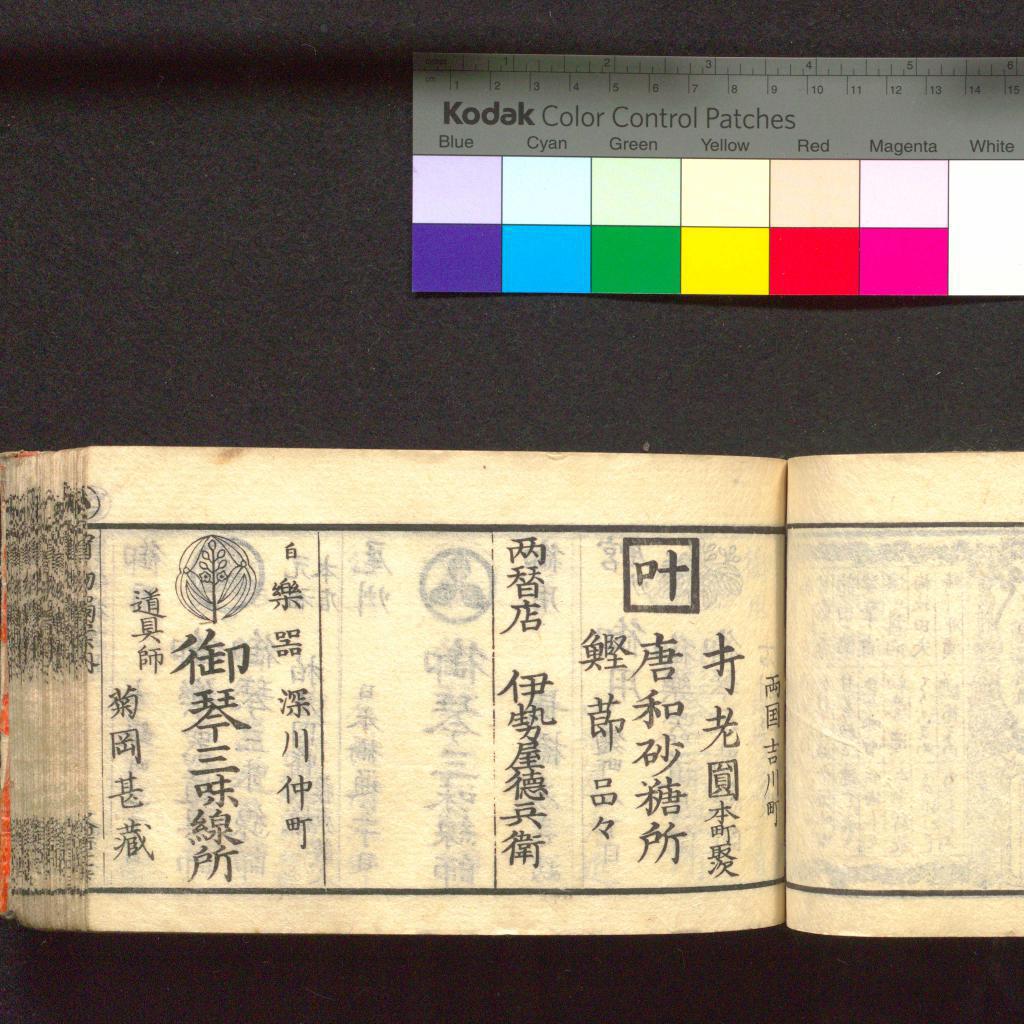 Kodak Color Control Patches
Blue Cyan Green Yellow Red Magenta White
両国吉川町
叶
老圓
本町
唐和砂糖所
鰹節品々
两替店 伊勢屋德兵衛
白樂器 深川仲町
御琴三味線所
道具師 菊岡甚藏